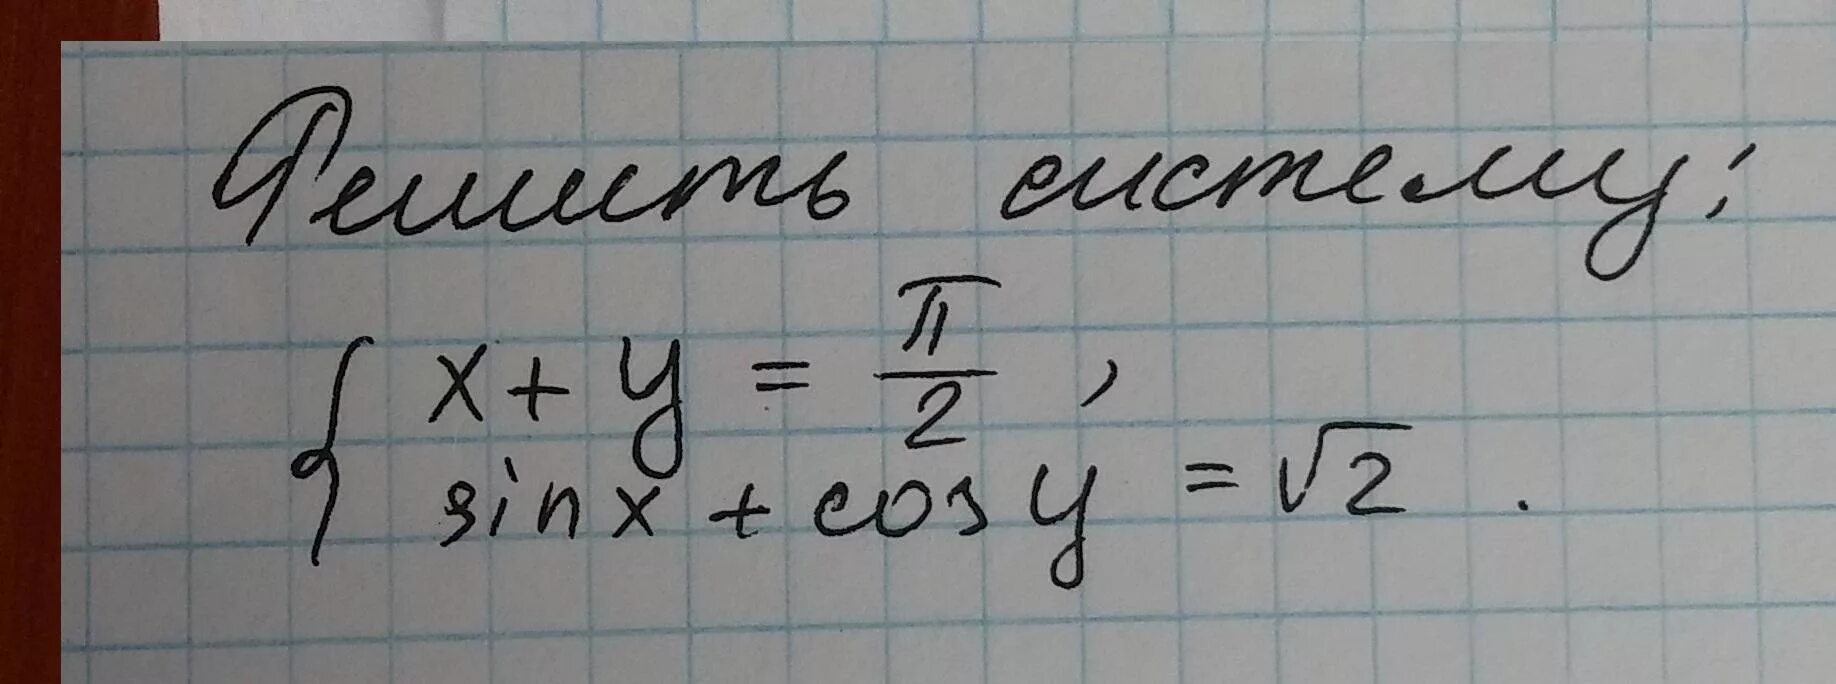 Решить систему:
x + y = π/2 ,
sin x + cos y = √2 .